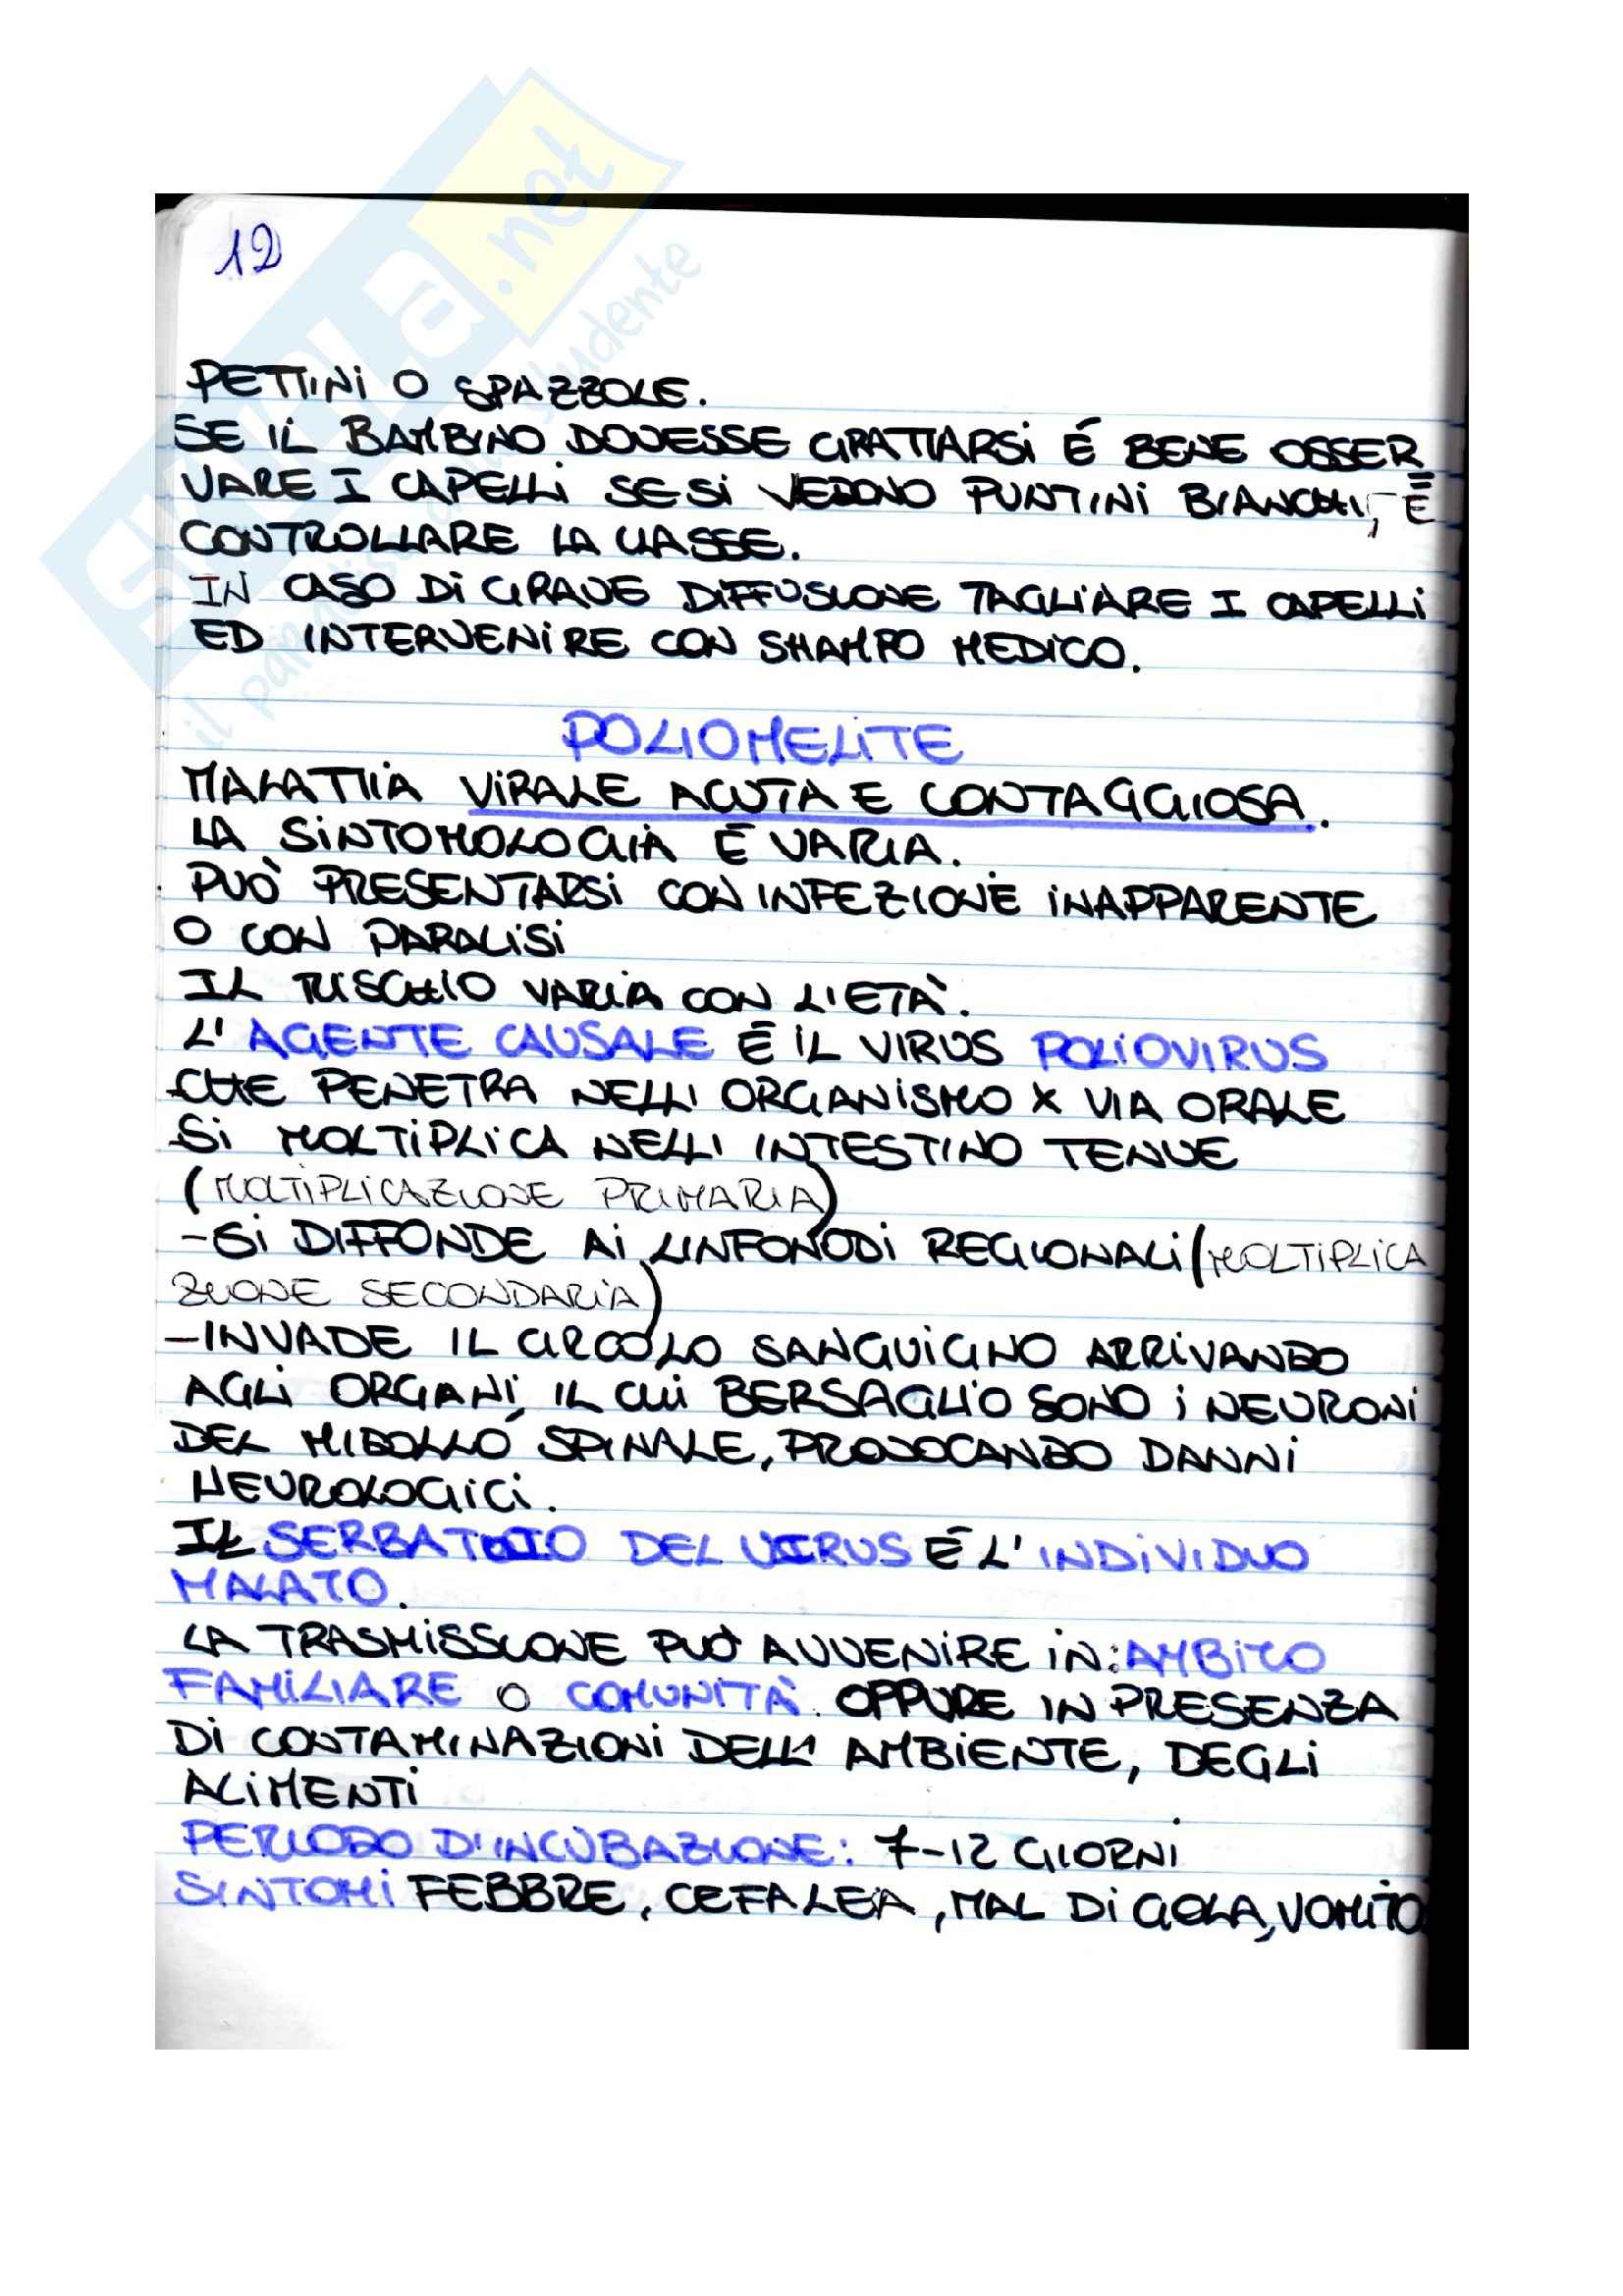 12
PETTINI O SPAZZOLE.
SE IL BAMBINO DOVESSE GRATTARSI É BENE OSSER
VARE I CAPELLI SE SI VEDONO PUNTINI BIANCHI, È
CONTROLLARE LA CLASSE.
IN CASO DI GRAVE DIFFUSIONE TAGLIARE I CAPELLI
ED INTERVENIRE CON SHAMPO MEDICO.
POLIOMELITE
MALATTIA VIRALE ACUTA E CONTAGGIOSA.
LA SINTOMOLOGIA È VARIA.
PUÒ PRESENTARSI CON INFEZIONE INAPPARENTE
O CON PARALISI
IL RISCHIO VARIA CON L'ETÀ.
L'AGENTE CAUSALE É IL VIRUS POLIOVIRUS
CHE PENETRA NELL'ORGANISMO X VIA ORALE
SI MOLTIPLICA NELL'INTESTINO TENUE
(MOLTIPLICAZIONE PRIMARIA)
-SI DIFFONDE AI LINFONODI REGIONALI (MOLTIPLICA
ZIONE SECONDARIA)
-INVADE IL CIRCOLO SANGUIGNO ARRIVANDO
AGLI ORGANI, IL CUI BERSAGLIO SONO I NEURONI
DEL MIDOLLO SPINALE, PROVOCANDO DANNI
NEUROLOGICI.
IL SERBATOIO DEL VIRUS É L'INDIVIDUO
MALATO.
LA TRASMISSIONE PUÒ AVVENIRE IN: AMBITO
FAMILIARE O COMUNITÀ. OPPURE IN PRESENZA
DI CONTAMINAZIONI DELL'AMBIENTE, DEGLI
ALIMENTI
PERIODO D'INCUBAZIONE: 7-12 GIORNI
SINTOMI FEBBRE, CEFALEA, MAL DI GOLA, VOMITO
SKUOLA.net
il paradiso dello studente